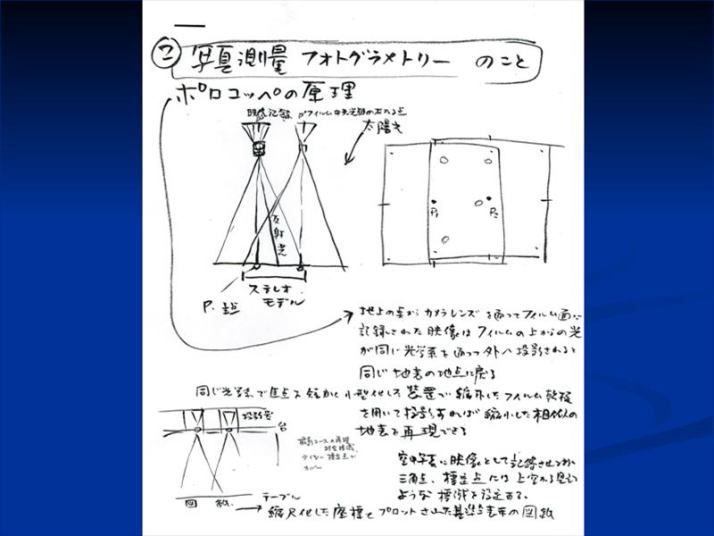 ② 写真測量 フォトグラメトリー のこと
ポロコッペの原理
太陽光
反射光
P. 主点
ステレオ
モデル
P₁ P₂
地上の点からカメラレンズを通ってフィルム面に
記録された映像はフィルムの上からの光
が同じ光学系を通って外へ投影されると
同じ地表の地点に戻る
同じ光学系で焦点を短かく小型化した装置で縮小したフィルム乾板
を用いて投影すれば縮小した相似の
地表を再現できる
台
空中写真に映像として記録させるため
三角点、標定点には上空から見える
ような標識を設置する。
テーブル
図 紙
縮尺化した座標をプロットされた基準点表示の図紙